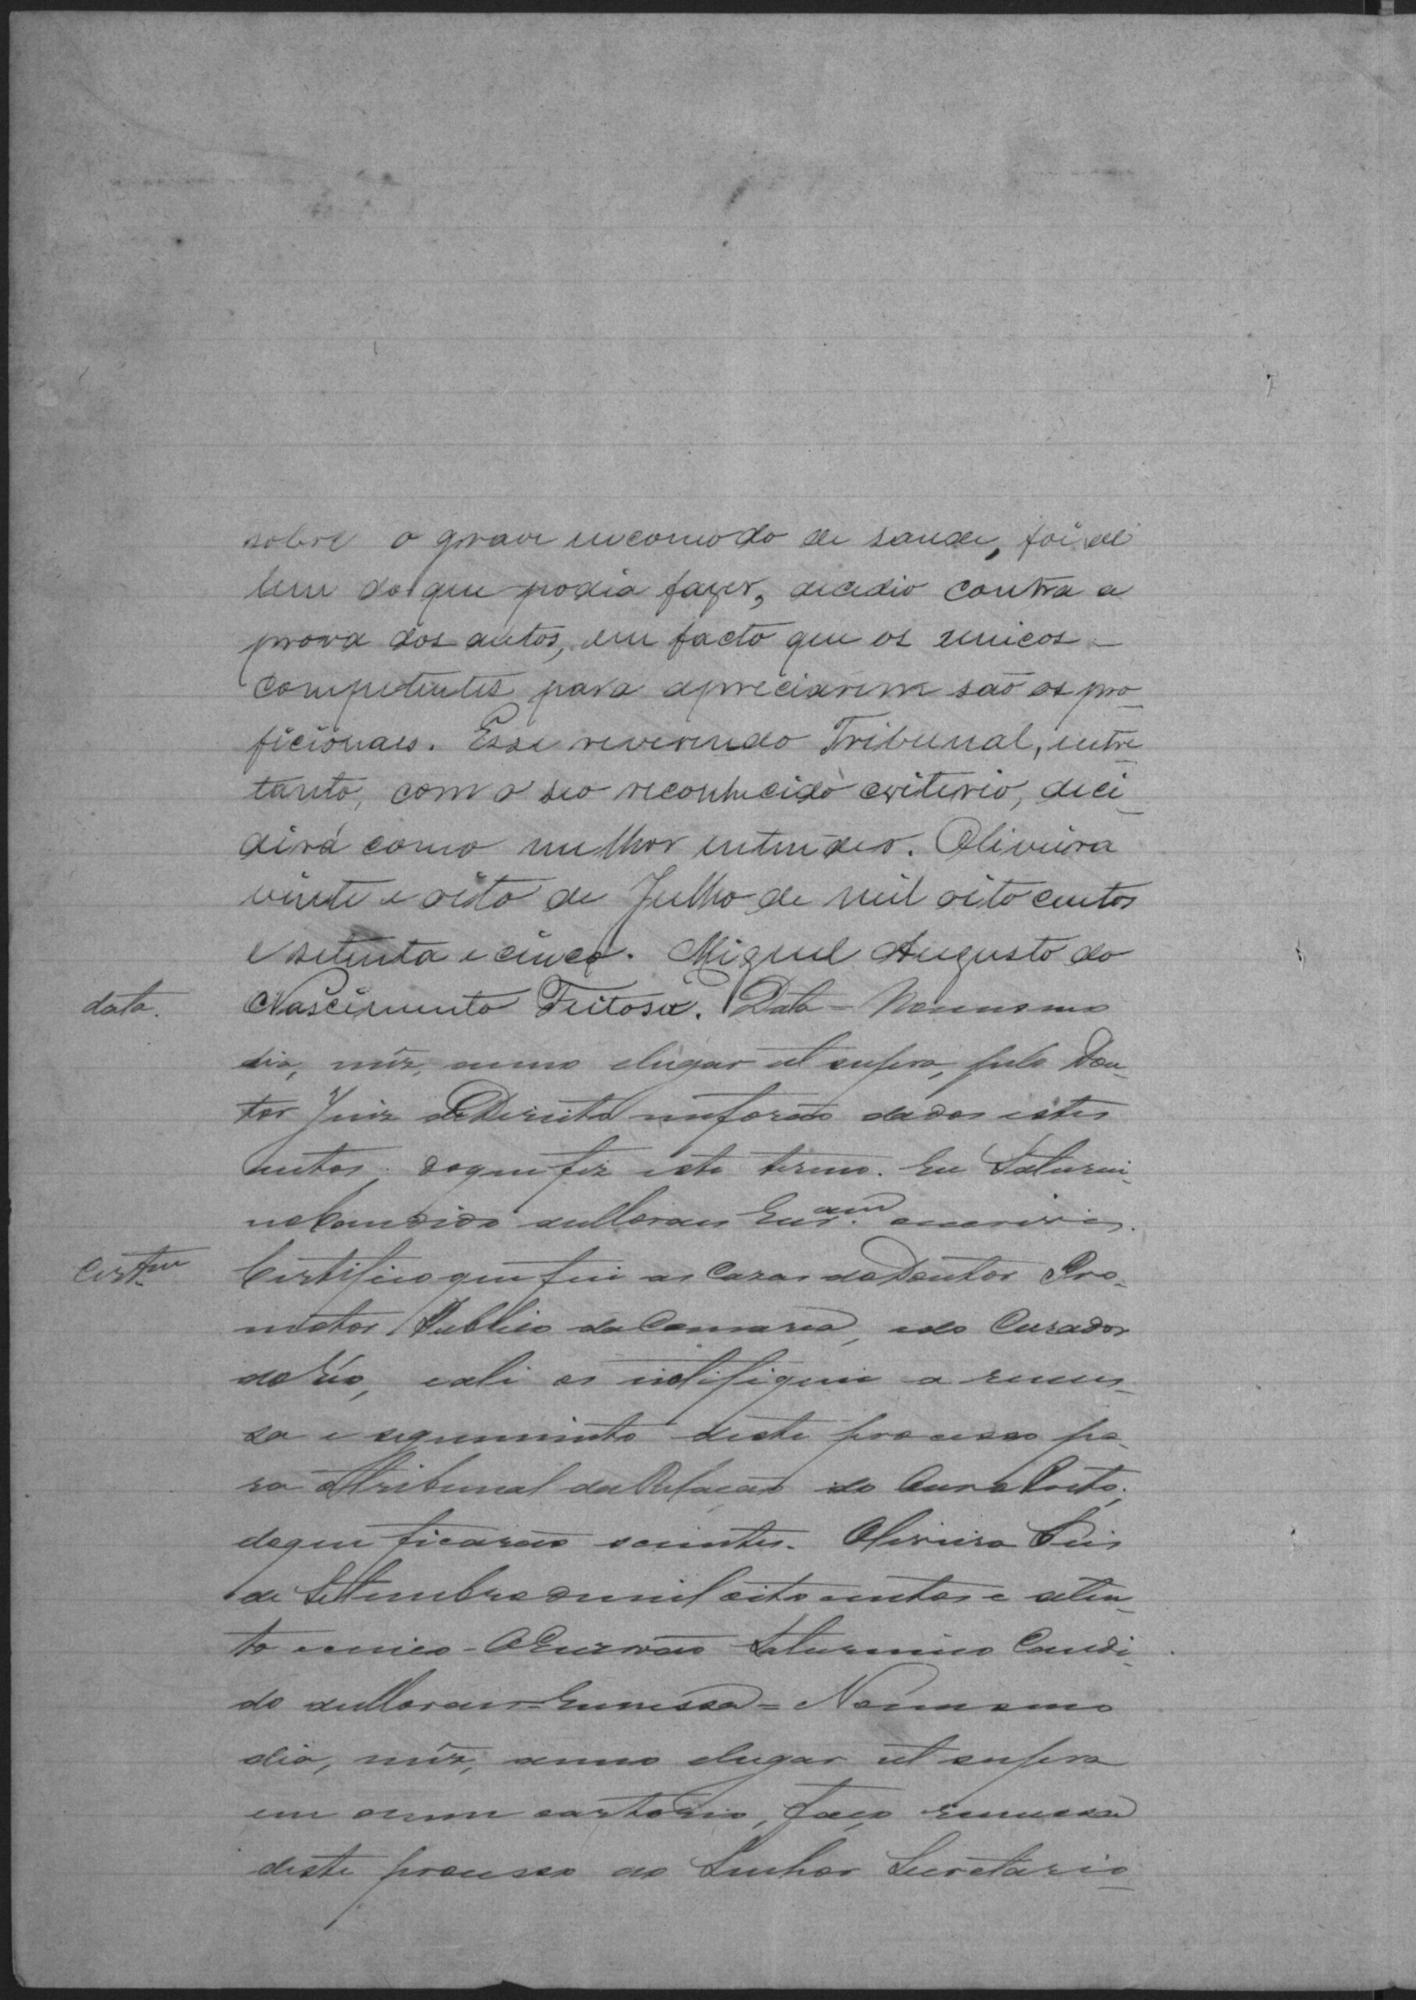 sobre o grave incomodo de saude, foi al
lem do que podia fazer, decedio contra a
prova dos autos, em facto que os unicos
competentes para apreciarem são os pro-
ficionaes. Esse reverendo Tribunal, entre
tanto, com o seo reconhecido criterio, deci-
dirá como melhor entender. Oliveira
vinte e oito de Julho de mil oito centos
e setenta e cinco. Miguel Augusto do
data. Nascimento Feitosa. Data = No mesmo
dia, mêz, anno elugar ut supra, pelo Dou-
tor Juiz de Direito me forão dados estes
autos, do que fiz este termo. Eu Saturni-
no Candido de Moraes Escr.am escrevi.
Certam Certifico que fui as cazas do Doutor Pro-
motor Publico da Comarca, e do Curador
do Reo, e ali os intifiquei a remes-
sa e seguimento deste processo pa-
ra o Tribunal da Relação do Ouro Preto,
de que ficarão scientes. Oliveira Seis
de Setembro de mil oito centos e seten-
ta e cinco - O Escrivão Saturnino Candi-
do de Moraes = Remessa = No mesmo
dia, mêz, anno elugar ut supra
em o meu cartorio, faço remessa
deste processo ao Senhor Secretario